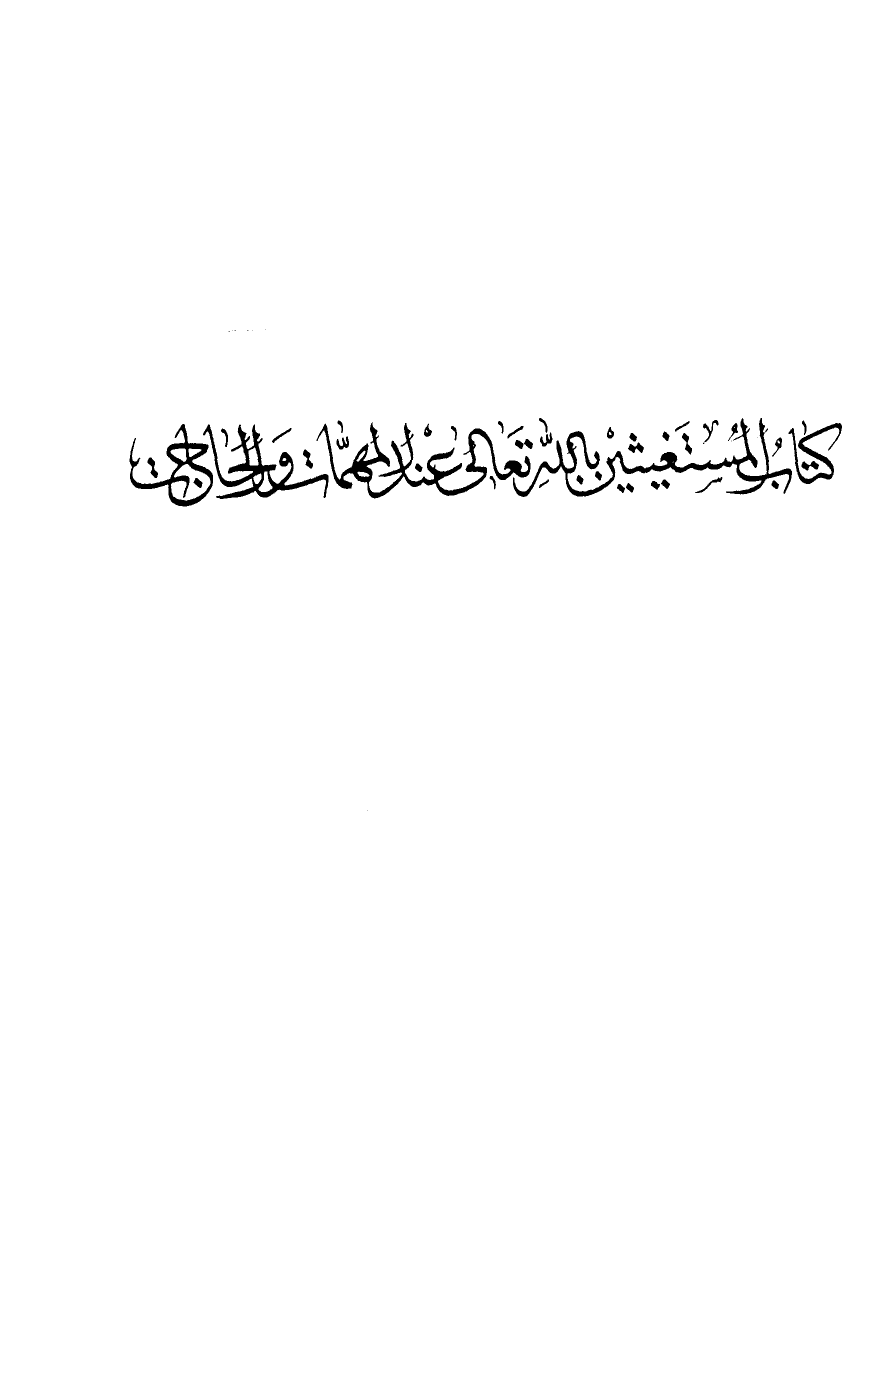 كتابُ المُستَغيثين باللهِ تَعالى عند المهمّات وَالحاجات